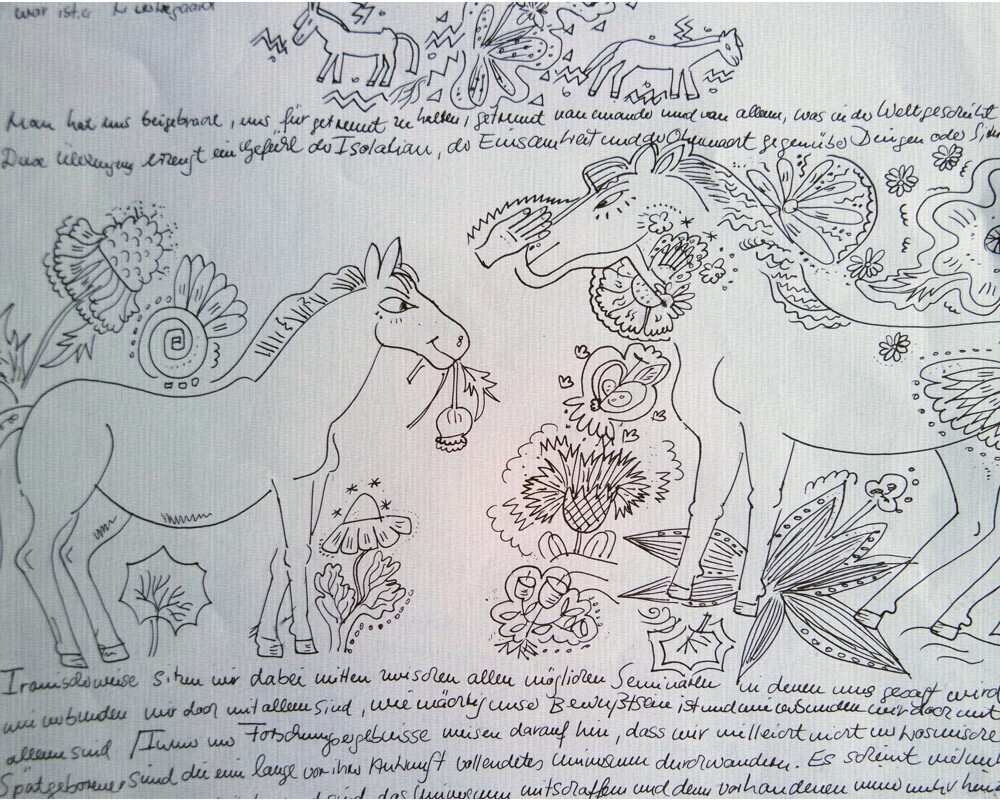 war ist er
Man hat uns beigebracht, uns für getrennt zu halten, getrennt voneinander und von allem, was in der Welt geschieht
Diese Überzeugung erzeugt ein Gefühl der Isolation, der Einsamkeit und der Ohnmacht gegenüber Dingen oder
Ironischerweise sitzen wir dabei mitten zwischen allen möglichen Seminaren in denen uns gesagt wird
wie verbunden wir doch mit allem sind, wie mächtig unser Bewußtsein ist und wie verbunden wir doch mit
allem sind Immer Forschungsergebnisse weisen darauf hin, dass wir vielleicht nicht nur kosmische
Spätgeborene sind die ein lange vor ihrer Ankunft vollendetes Universum durchwandern. Es scheint
das Universum mitschaffen und dem vorhandenen immer mehr